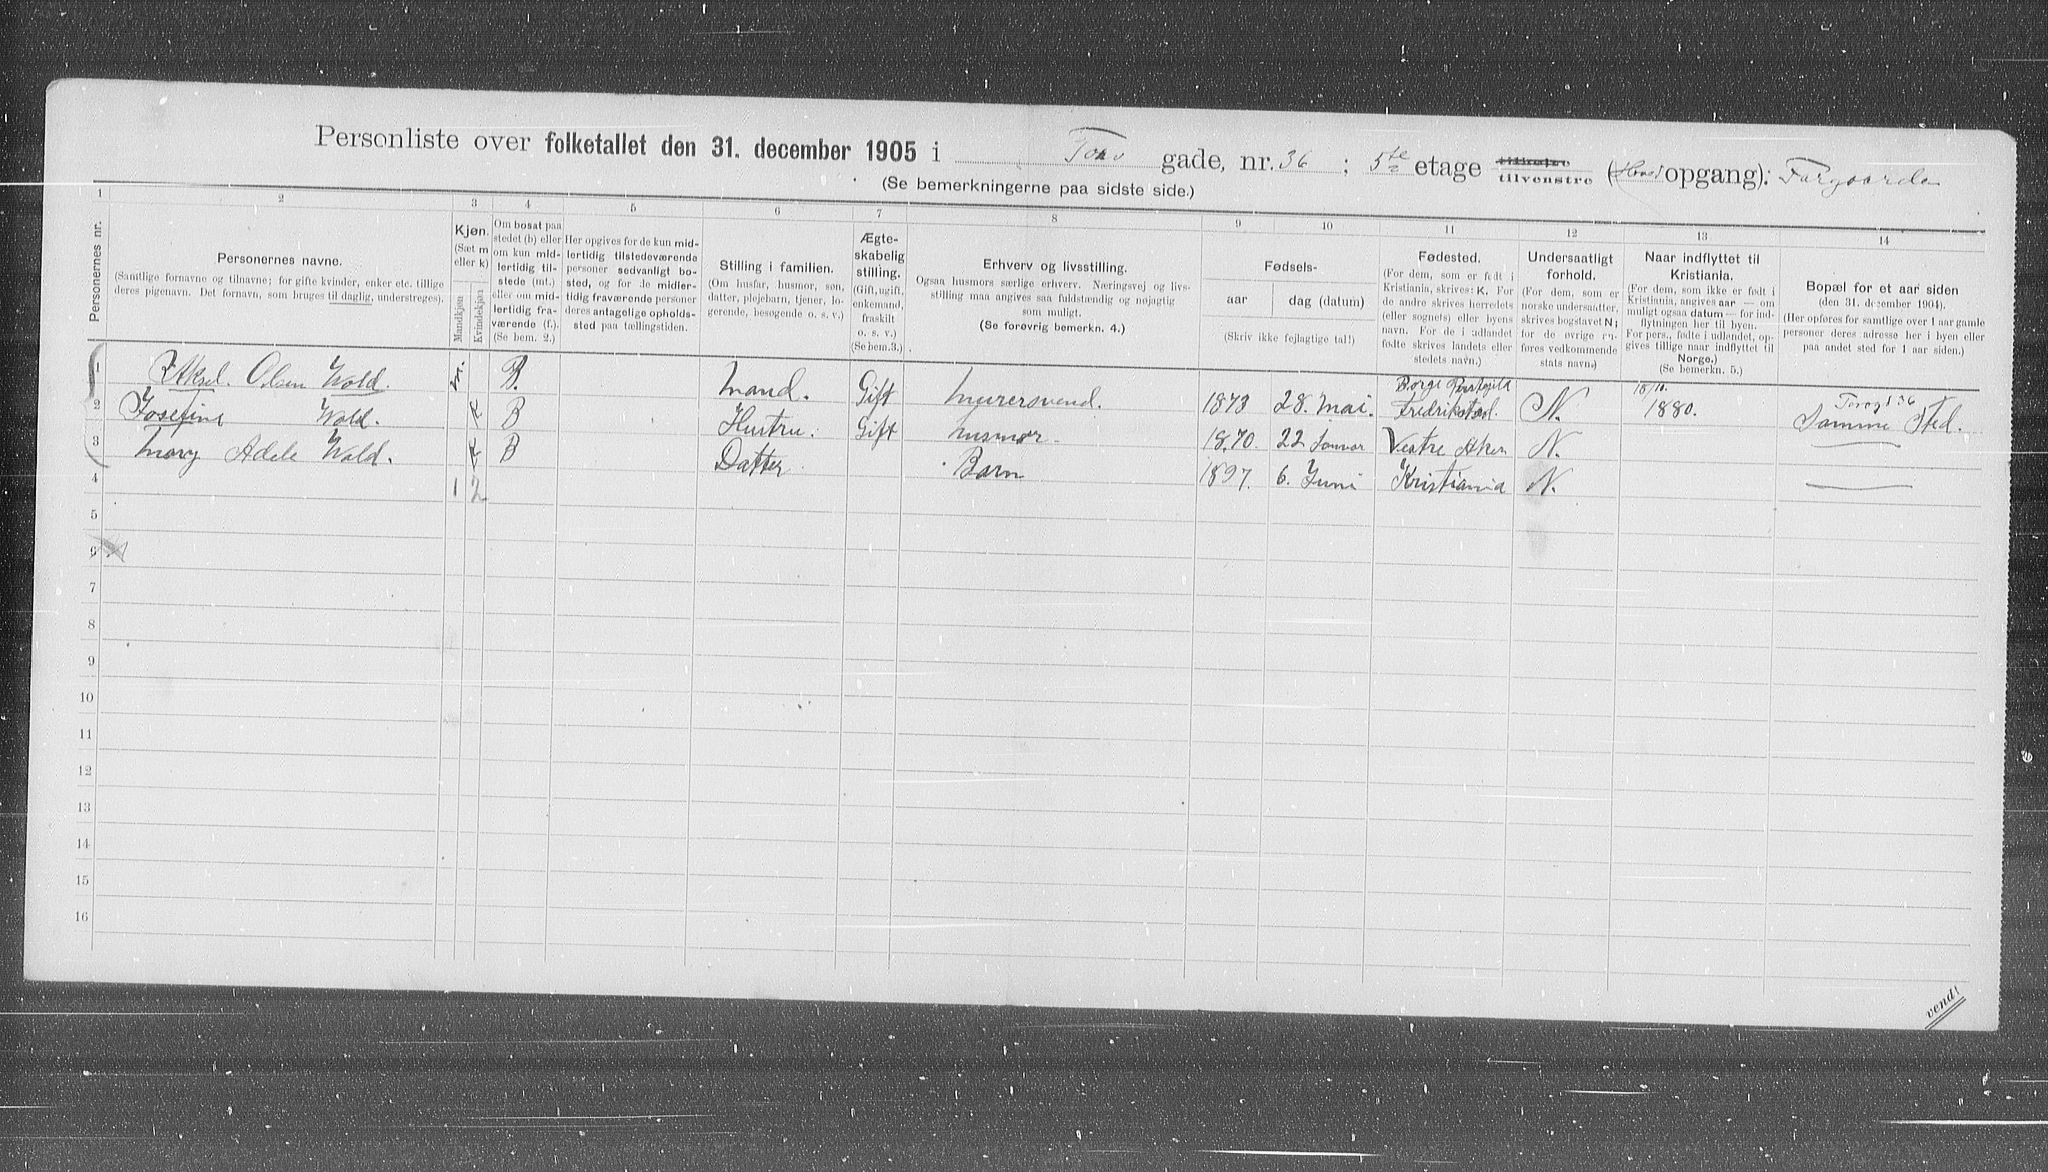 Personliste over folketallet den 31. december 1905 i Torv gade, nr. 36 ; 5te etage tilhøire tilvenstre ( opgang):
(Se bemerkningerne paa sidste side.)
1 2 3 4 5 6 7 8 9 10 11 12 13 14
Personernes nr.
Personernes navne.
(Samtlige fornavne og tilnavne; for gifte kvinder, enker etc. tillige
deres pigenavn. Det fornavn, som bruges til daglig, understreges).
Kjøn.
(Sæt m
eller k)
Mandkjøn
Kvindekjøn
Om bosat paa
stedet (b) eller
om kun mid-
lertidig til-
stede (mt.)
eller om mid-
lertidig fra-
værende (f.).
(Se bem. 2.)
Her opgives for de kun mid-
lertidig tilstedeværende
personer sedvanligt bo-
sted, og for de midler-
tidig fraværende personer
deres antagelige opholds-
sted paa tællingstiden.
Stilling i familien.
(Om husfar, husmor, søn,
datter, plejebarn, tjener, lo-
gerende, besøgende o. s. v.)
Ægte-
skabelig
stilling.
(Gift, ugift,
enkemand,
fraskilt
o. s. v.)
(Se bem.3.)
Erhverv og livsstilling.
Ogsaa husmors særlige erhverv. Næringsvej og livs-
stilling maa angives saa fuldstændig og nøjagtig
som muligt.
(Se forøvrig bemerkn. 4.)
Fødsels-
aar
dag (datum)
(Skriv ikke fejlagtige tal!)
Fødested.
(For dem, som er født i
Kristiania, skrives: K. For
de andre skrives herredets
(eller sognets) eller byens
navn. For de i udlandet
fødte skrives landets eller
stedets navn.)
Undersaatligt
forhold.
(For dem, som er
norske undersaatter,
skrives bogstavet N;
for de øvrige an-
føres vedkommende
stats navn.)
Naar indflyttet til
Kristiania.
(For dem, som ikke er født i
Kristiania, angives aar — om
muligt ogsaa datum — for ind-
flytningen her til byen.
For pers., fødte i udlandet, op-
gives tillige naar indflyttet til
Norge.)
(Se bemerkn. 5.)
Bopæl for et aar siden
(den 31. december 1904).
(Her opføres for samtlige over 1 aar gamle
personer deres adresse her i byen eller
paa andet sted for 1 aar siden.)
1 Aksel Olsen Wold. m. B. Mand. Gift Murersvend. 1873 28. Mai. Borge Fredrikstad. N. 1880. Torvgt 36 Samme Sted.
2 Josefine Wold. k B Hustru. Gift Husmor. 1870. 22 Januar Vestre Aker N.
3 Mary Adele Wold. k B Datter Barn 1897. 6. Juni Kristiania N.
4 1 2
5
6
7
8
9
10
11
12
13
14
15
16
vend!